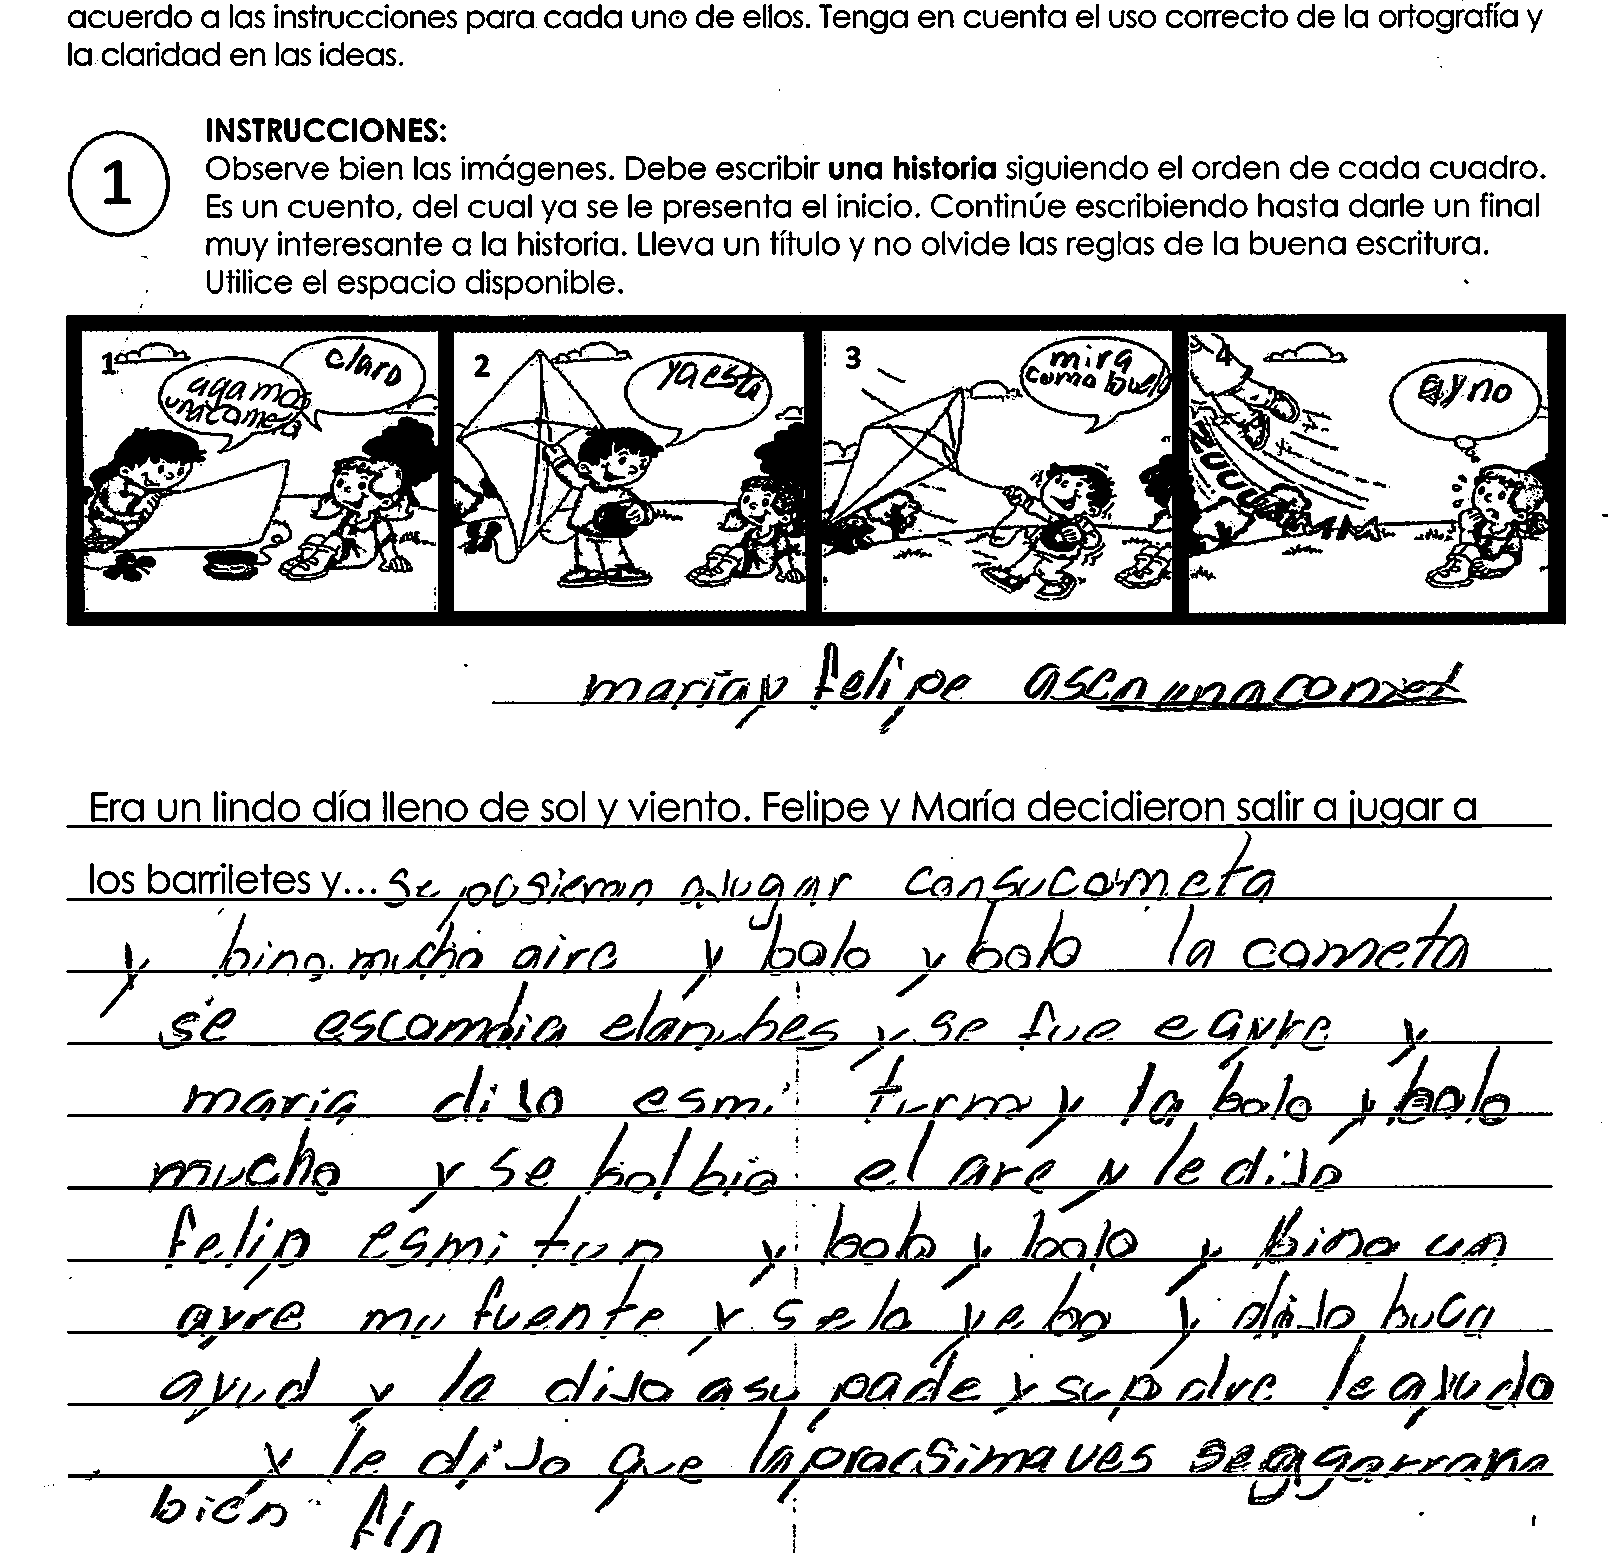 acuerdo a las instrucciones para cada uno de ellos. Tenga en cuenta el uso correcto de la ortografía y
la claridad en las ideas.
INSTRUCCIONES:
1
Observe bien las imágenes. Debe escribir una historia siguiendo el orden de cada cuadro.
Es un cuento, del cual ya se le presenta el inicio. Continúe escribiendo hasta darle un final
muy interesante a la historia. Lleva un título y no olvide las reglas de la buena escritura.
Utilice el espacio disponible.
1
agamos
unacometa
claro
2
ya esta
3
mira
como buela
4
ay no
ZUUUUMMM
maria y felipe asen una
Era un lindo día lleno de sol y viento. Felipe y María decidieron salir a jugar a
los barriletes y... se posieron a jugar consucometa
y bino mucho aire y bolo y bolo la cometa
se escambia y se fue e ayre y
maria dijo esmi turno y la bolo y bolo
mucho y se bolbio el are y le dijo
felip esmi tun y bolo y bolo y bino un
ayre mu fuente y se lo yebo y dijo buca
ayud y la dijo asu pade y su padre le ayudo
y le dijo que la procsima ves se aggarrara
bien fin